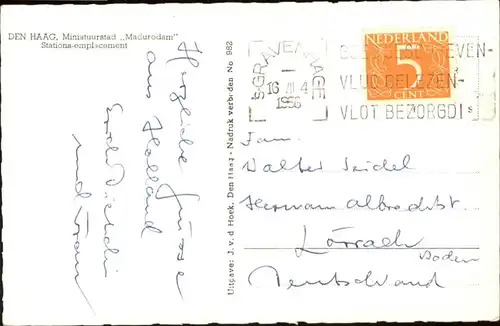 DEN HAAG, Miniatuurstad „Madurodam"
Stations-emplacement
Herzliche Grüsse
aus Holland
und Frau
Uitgave: J. v. d Hoek, Den Haag - Nadruk verboden No 982
'sGRAVENHAGE
16 VII 4
1956
VLUG GELEZEN-
VLOT BEZORGD!
NEDERLAND
5
CENT
Fam.
Walter Seidel
Hermann Albrechtst.
Lörrach
Baden
Deutschland